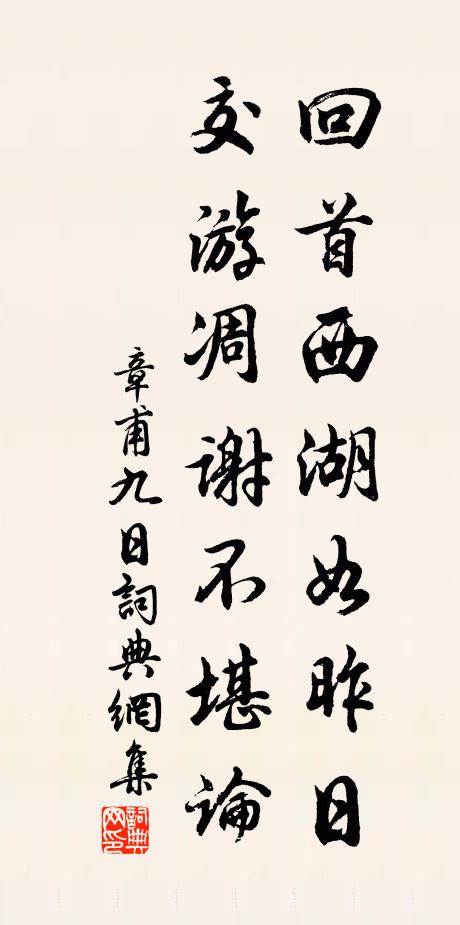 回首西湖如昨日
交游凋谢不堪論
章甫九日詞典網集
詞典
网印